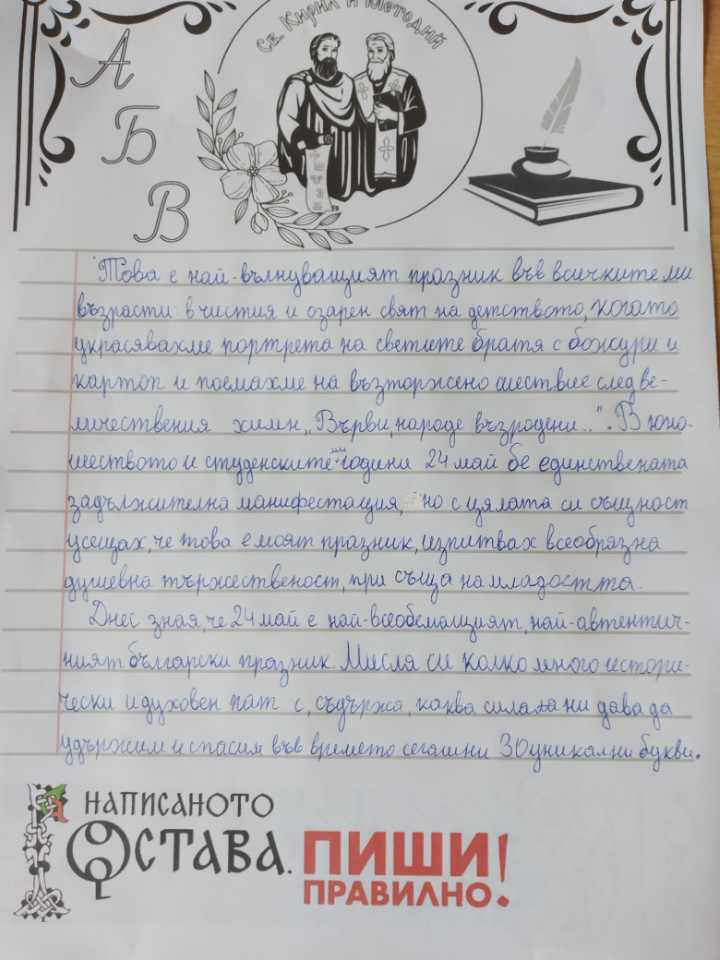 Св. Кирил и Методий
А
Б
В
Това е най-вълнуващият празник във всичките ми
възрасти: в чистия и озарен свят на детството, когато
украсявахме портрета на светите братя с божури и
картоп и поемахме на възторжено шествие след ве-
личествения химн „Върви, народе възродени..". В юно-
шеството и студенските години 24 май бе единствената
задължителна манифестация, но с цялата си същност
усещах, че това е моят празник, изпитвах всеобразна
душевна тържественост, при съща на младостта.
Днес зная, че 24 май е най-всеобемащият, най-автентич-
ният български празник. Мисля си колко много истори-
чески и духовен пат с, съдържа, каква сила ни дава да
удържим и спасим във времето сегашни 30 уникални букви.
НАПИСАНОТО
ОСТАВА.
ПИШИ
ПРАВИЛНО!